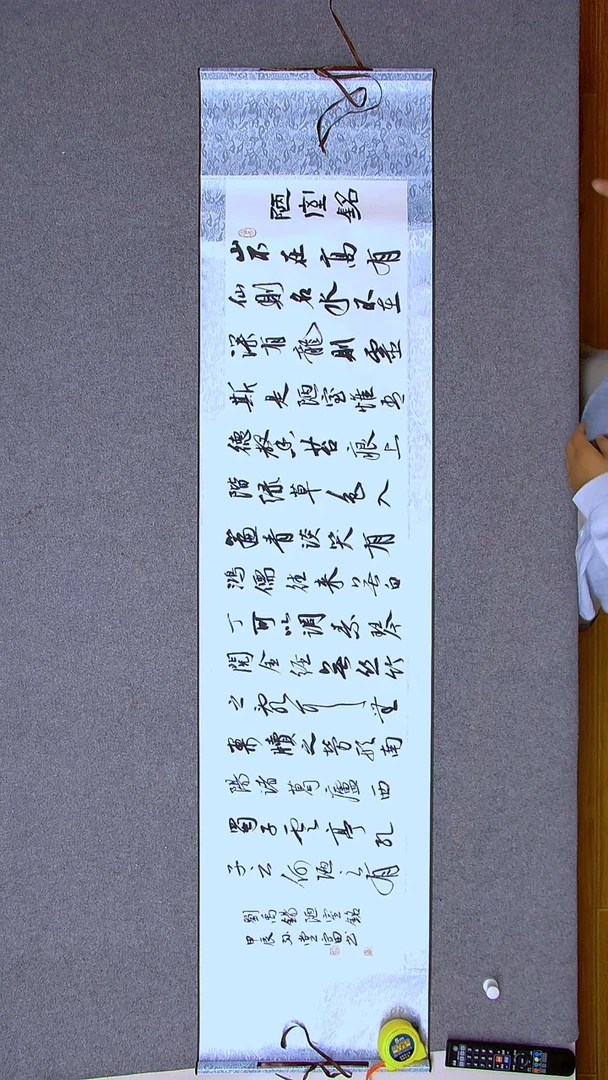 陋室銘
山不在高有
仙則名水不在
深有龍則靈
斯是陋室惟吾
德馨苔痕上
階綠草色入
簾青談笑有
鴻儒往来無白
丁可以調素琴
閱金經無絲竹
之亂耳無
案牘之勞形南
陽諸葛廬西
蜀子雲亭孔
子云何陋之有
劉禹錫陋室銘
甲辰